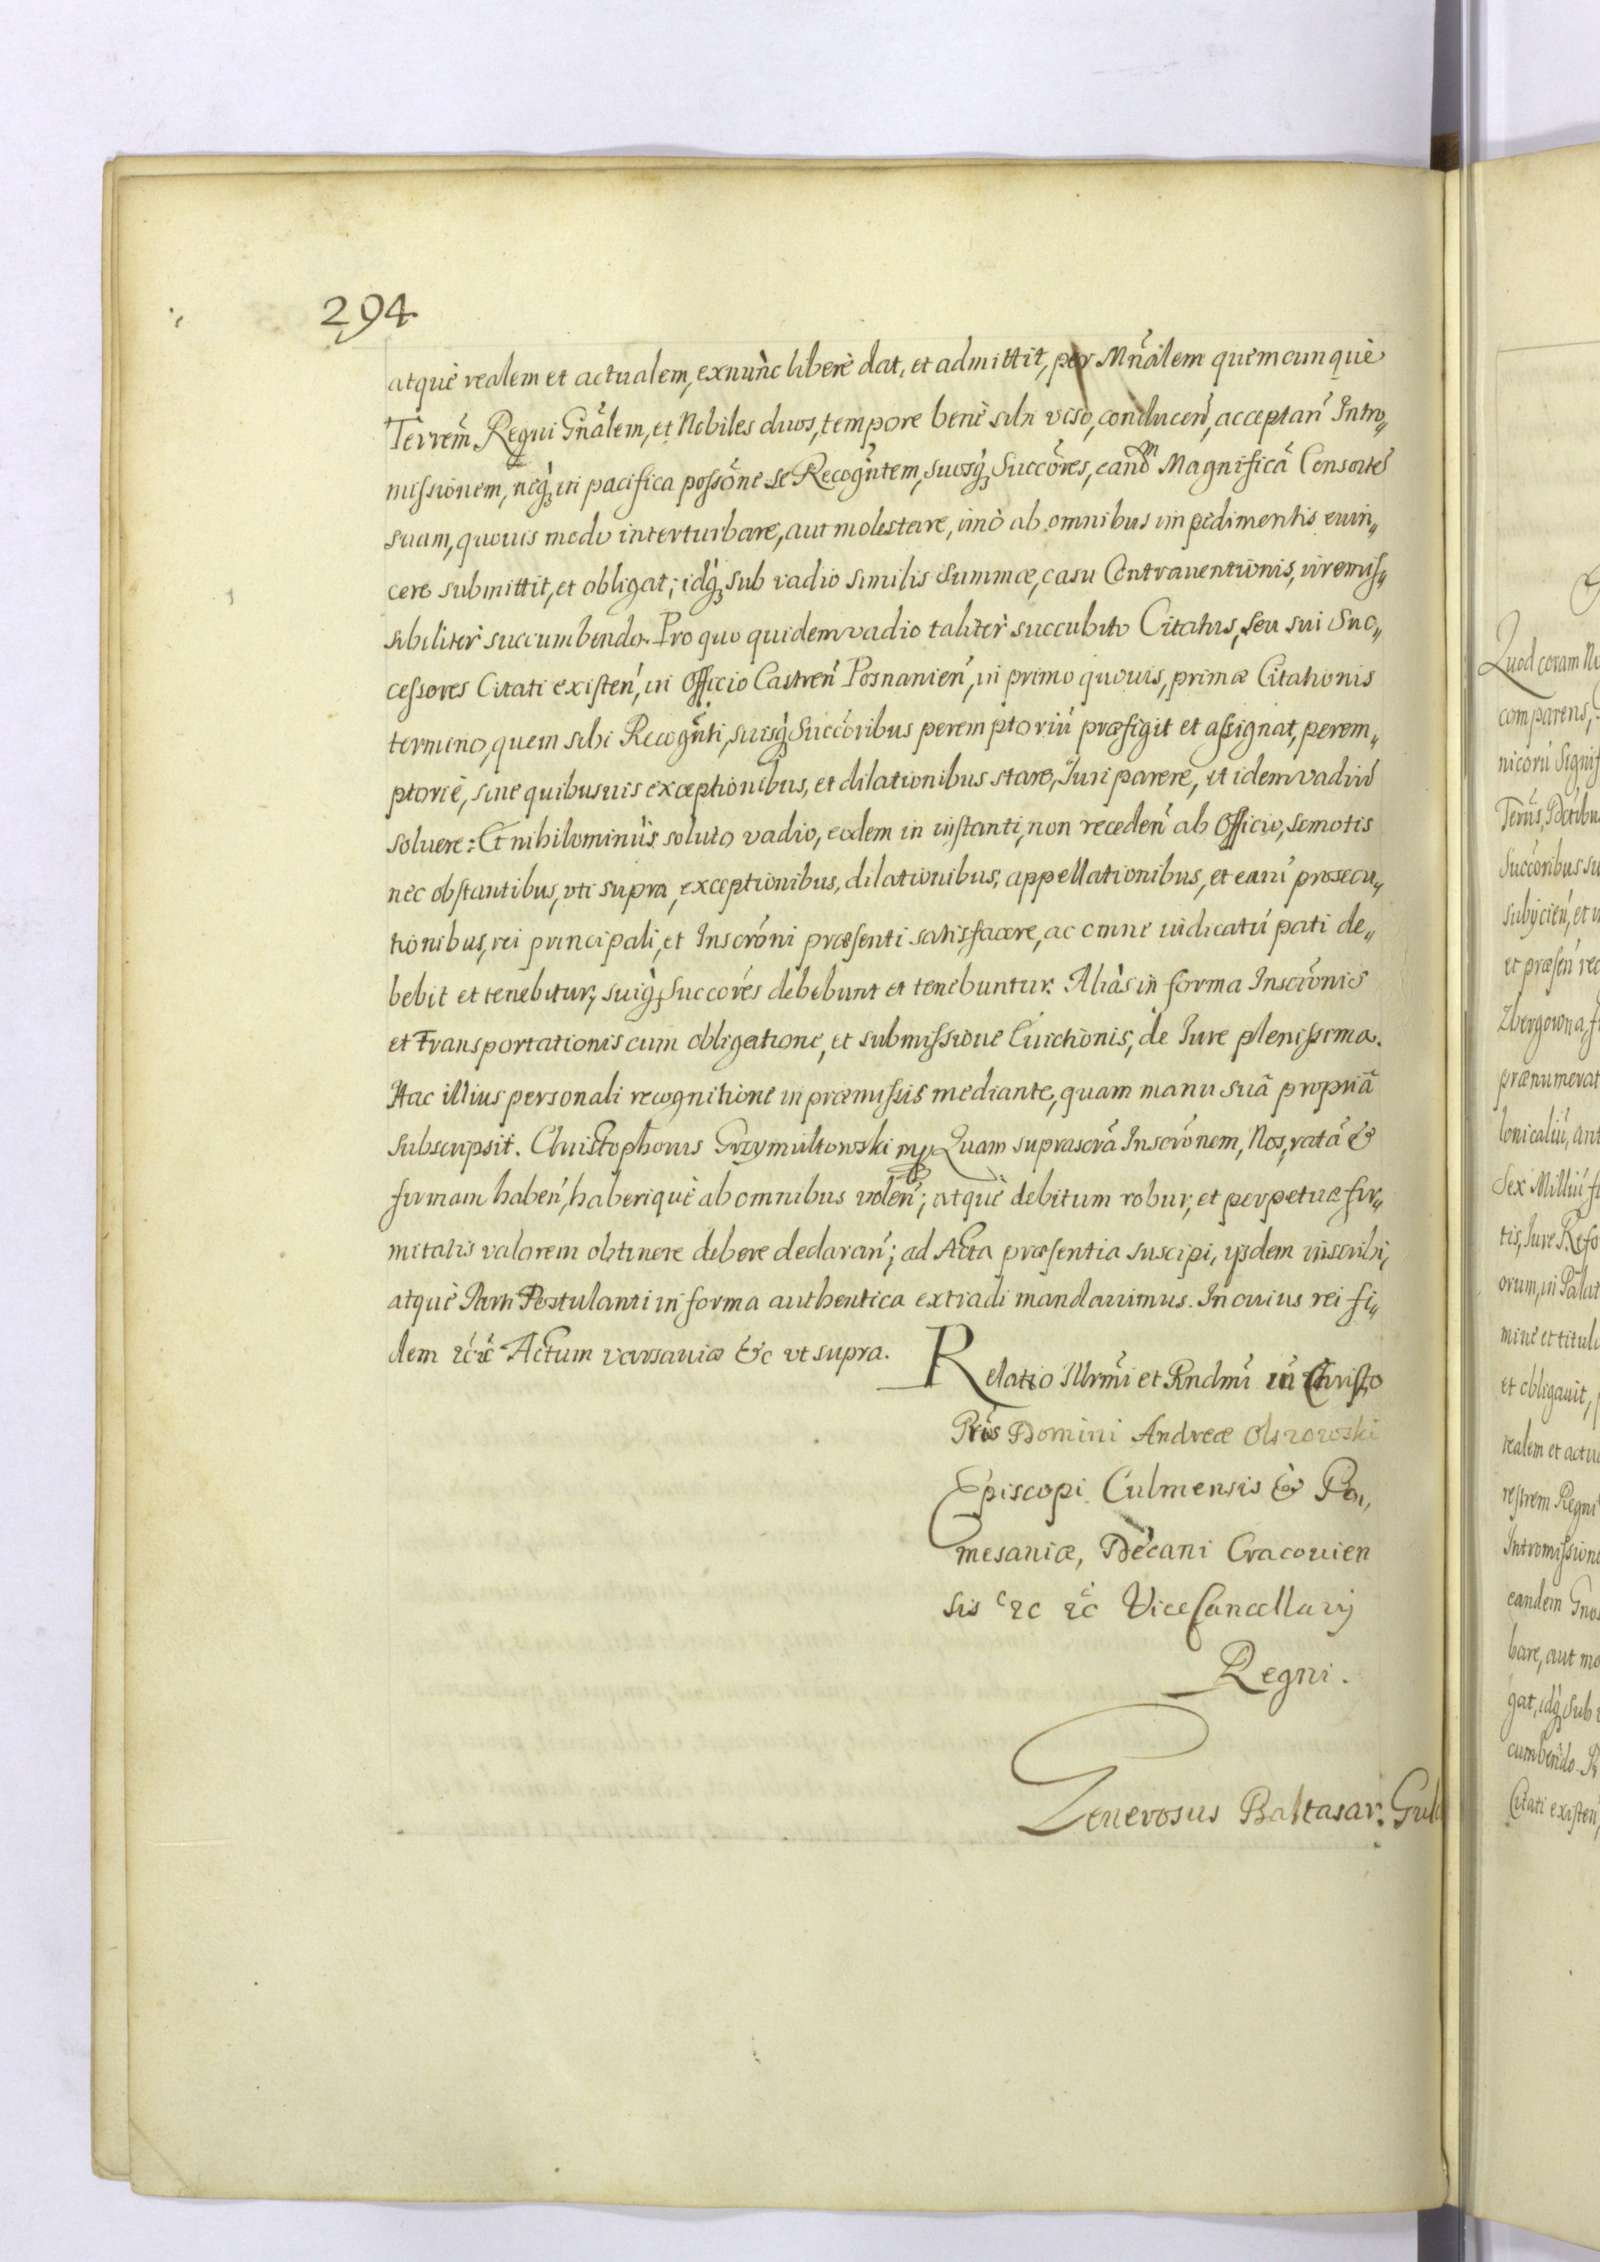 294
atquè realem et actualem, exnùnc liberè dat, et admittit, per Mñalem quemcunquè
Terrem̃ Regni Gñalem, et Nobiles duos, tempore benè sibi viso, conducen̄, acceptan̄ Intro„
missionem, neq́ꝫ in pacifica possõne se Recogñtem, suosq́ꝫ Succõres, eand̃m Magnificã Consortẽ
suam, quouis modo interturbare, aut molestare, imò ab omnibus impedimentis euin„
cere submittit, et obligat; idq́ꝫ sub vadio similis Summæ, casu Contrauentionis, irremis„
sibilitèr succumbendo. Pro quo quidem vadio talitèr succubito Citatus, seu sui Suc„
cessores Citati existen̄, in Officio Castren̄ Posnanien̄, in primo quouis, primæ Citationis
termino, quem sibi Recogñti, suisq́ꝫ Succõribus peremptoriũ præfigit et assignat, perem„
ptoriè, sine quibusuis exceptionibus, et dilationibus stare, Iuri parere, et idem vadiũ
soluere: Et nihilominùs soluto vadio, eodem in instanti, non receden̄ ab Officio, semotis
nec obstantibus, vti supra, exceptionibus, dilationibus, appellationibus, et earũ prosecu„
tionibus, rei principali, et Inscrõni præsenti satisfacere, ac omne iudicatũ pati de„
bebit et tenebitur, suiq́ꝫ Succõres debebunt et tenebuntur. Aliàs in forma Inscrõnis
et Transportationis cum obligatione, et submissione Euictionis, de Iure plenissima.
Hac illius personali recognitione in præmissis mediante, quam manu suã propriã
subscripsit. Christophorus Grzymultowski mp Quam suprascrã Inscrõnem, Nos, ratã &
firmam haben̄, haberiquè ab omnibus volen̄; atquè debitum robur, et perpetuæ fir„
mitatis valorem obtinere debere declaran̄; ad Acta præsentia suscipi, ijsdem inscribi,
atquè Parti Postulanti in forma authentica extradi mandauimus. In cuius rei fi„
dem ꝛc̃ ꝛc̃ Actum varsauiæ &c vt supra.
Relatio Illrm̃i et Rndm̃i in Christo
Pr̃is Domini Andreæ Olszowski
Episcopi Culmensis & Po„
mesaniæ, Decani Cracouien
sis ꝛc ꝛc̃ ViceCancellarij
Regni.
Generosus Baltasar Gul
Quod coram
comparens,
nicorũ
Succõribus su
subijcien̄, et
et præsen̄ rec
Zbergowna,
prænumerat
lonicaliũ, ant
Sex Milliũ
tis, Iure Refo
orum, in Palat
mine et titulo
et obligauit,
realem et actu
restrem Regni
Intromission
eandem Gnos
bare, aut mo
gat, idq́ꝫ sub
cumbendo. Pr
Citati existen̄,